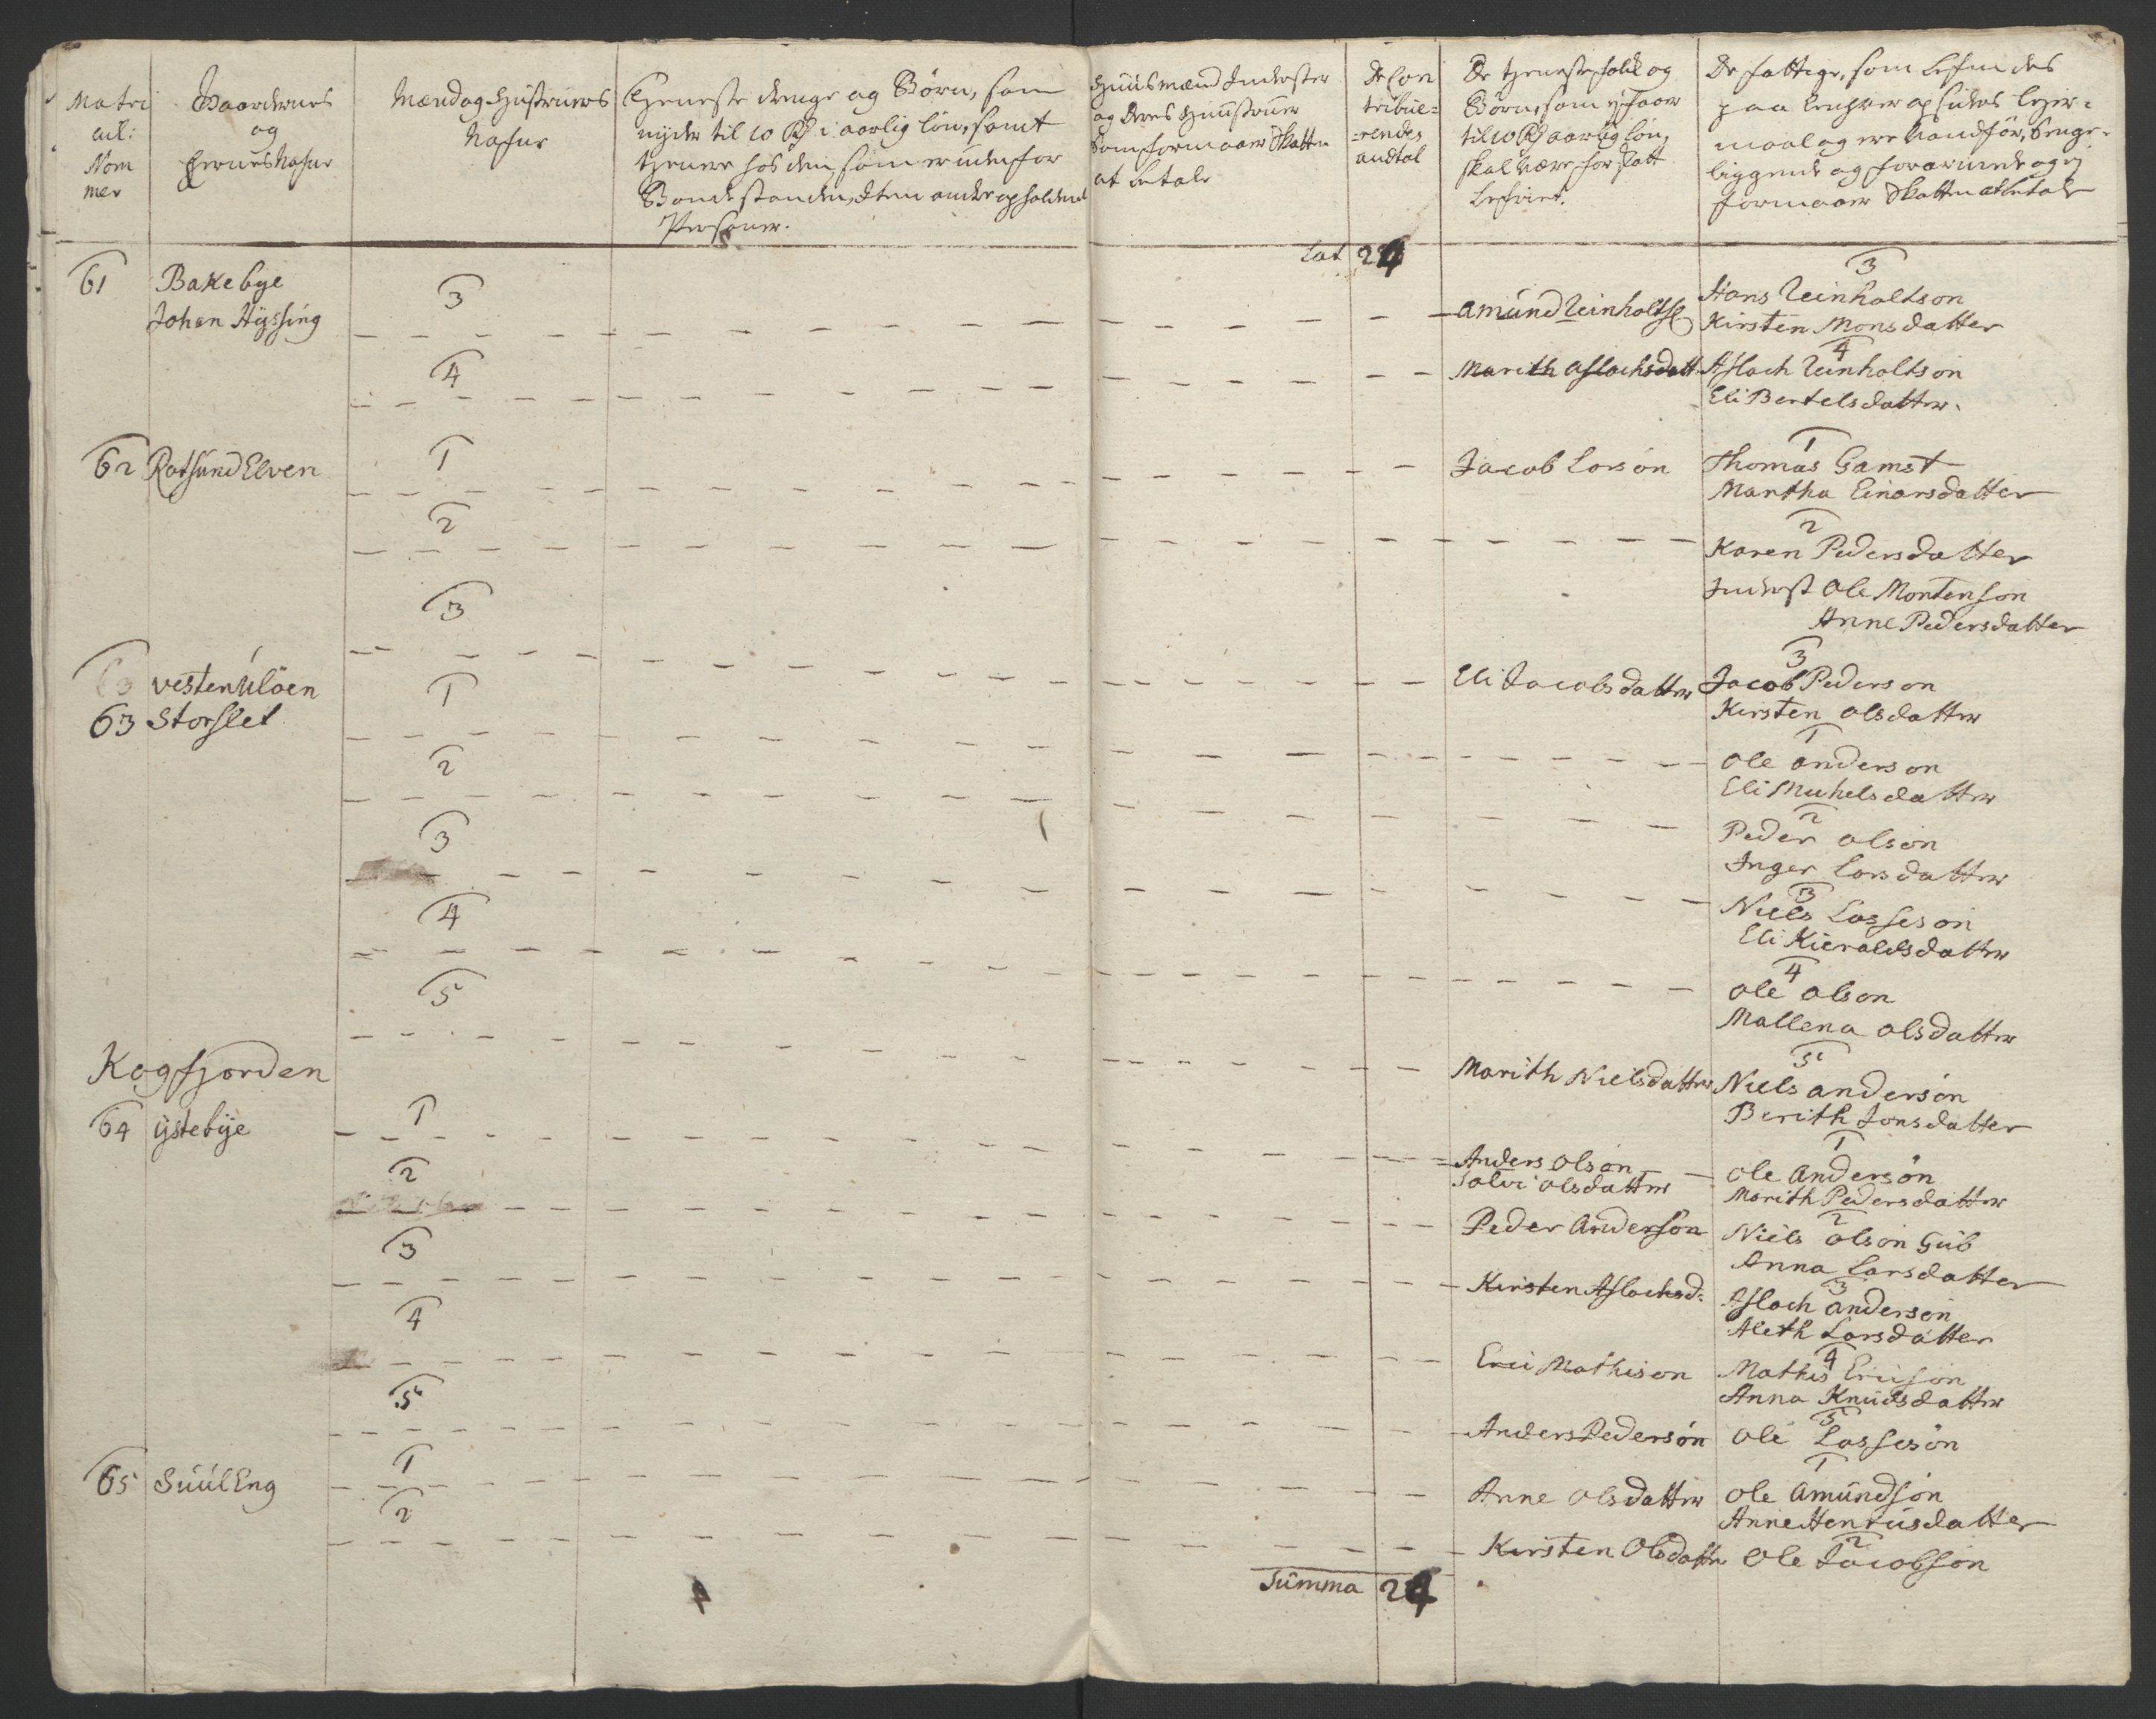 Matri
cul:
Nom
mer
Gaardernes
og
Eiernes Nafne
Mænd og Hustruers
Nafne
Tieneste drenge og Börn, som
nyder til 10 Rd i aarlig lön, samt
tiener hos dem, som er uden for
Bondestanden, Item andre opholdende
Personer.
Huusmænd Inderster
og deres Huustruer
som formaaer Skatten
at betale
De Con
tribue=
=rendes
andtal
De tieneste folck og
Börn, som ej faaer
til 10 Rd aarlig lön,
skal være for skatt
befriet.
De fattige, som befindes
paa
maal og ere Vanför, Senge=
liggende og forarmede og ej
formaaer Skatten at betale
Lat 24
61 Bakebye
Johan Hyssing
3
Amund Reinholts
3
Hans Reinholtsøn
Kirsten Monsdatter
4
Marith Aslachsdatt
4
Aslach Reinholtsøn
Eli Bertelsdatter.
62 Rotsund Elven
1
Jacob Larsøn
1
Thomas Gamst
Martha Einarsdatter
2
2
Karen Pedersdatter
Inderst Ole Mortensøn
Anne Pedersdatter
3
Eli Jacobsdatter
3
Jacob Pedersøn
Kirsten Olsdatter
63 Vesten Ulöen
63 Storslet
1
1
Ole Andersøn
Eli Michelsdatter
2
2
Peder Olsøn
Inger Larsdatter
3
3
Niels Lassesøn
Eli Kieraldsdatter
4
4
Ole Olsøn
Mallena Olsdatter
5
Marith Nielsdatter
5
Niels Andersøn
Berith Jonsdatter
Kaagfjorden
64 Ystebye
1
Anders Olsøn
Solvi Olsdatter
1
Ole Andersøn
Marith Pedersdatter
2
Peder Andersøn
2
Niels Olsøn Gub
Anna Larsdatter
3
Kirsten Aslachsd:
3
Aslach Andersøn
Aleth Larsdatter
4
Eric Mathisøn
4
Mathis Ericsøn
Anna Knudsdatter
5
Anders Pedersøn
5
Ole Lassesøn
65 Suul Eng
1
Anne Olsdatter
1
Ole Amundsøn
Anne Henricsdatter
2
Kirsten Olsdatter
2
Ole Jacobsøn
Summa 24